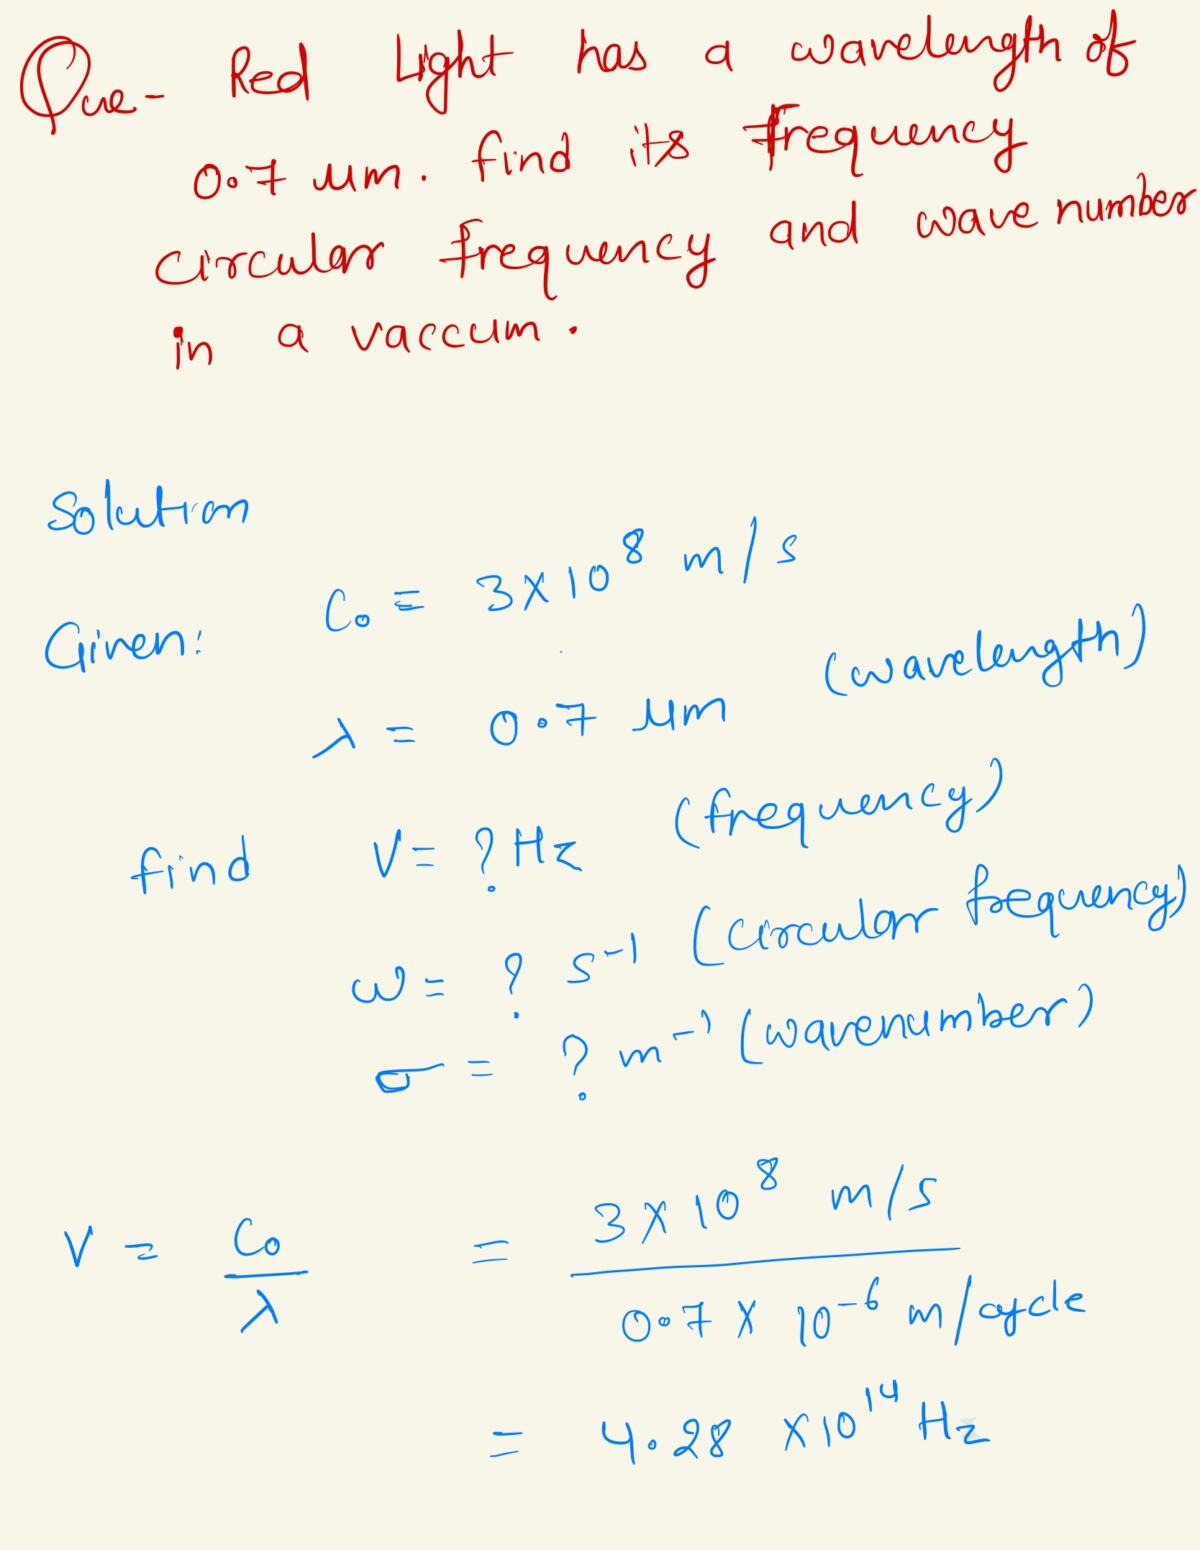 Que- Red Light has a wavelength of
0.7 µm. find its frequency
circular frequency and wave number
in a vaccum.
Solution
Given: C₀ = 3×10⁸ m/s
λ = 0.7 µm (wavelength)
find ν = ? Hz (frequency)
ω = ? s⁻¹ (circular frequency)
σ = ? m⁻¹ (wavenumber)
ν = C₀/λ = 3×10⁸ m/s / 0.7 × 10⁻⁶ m/cycle
= 4.28 ×10¹⁴ Hz